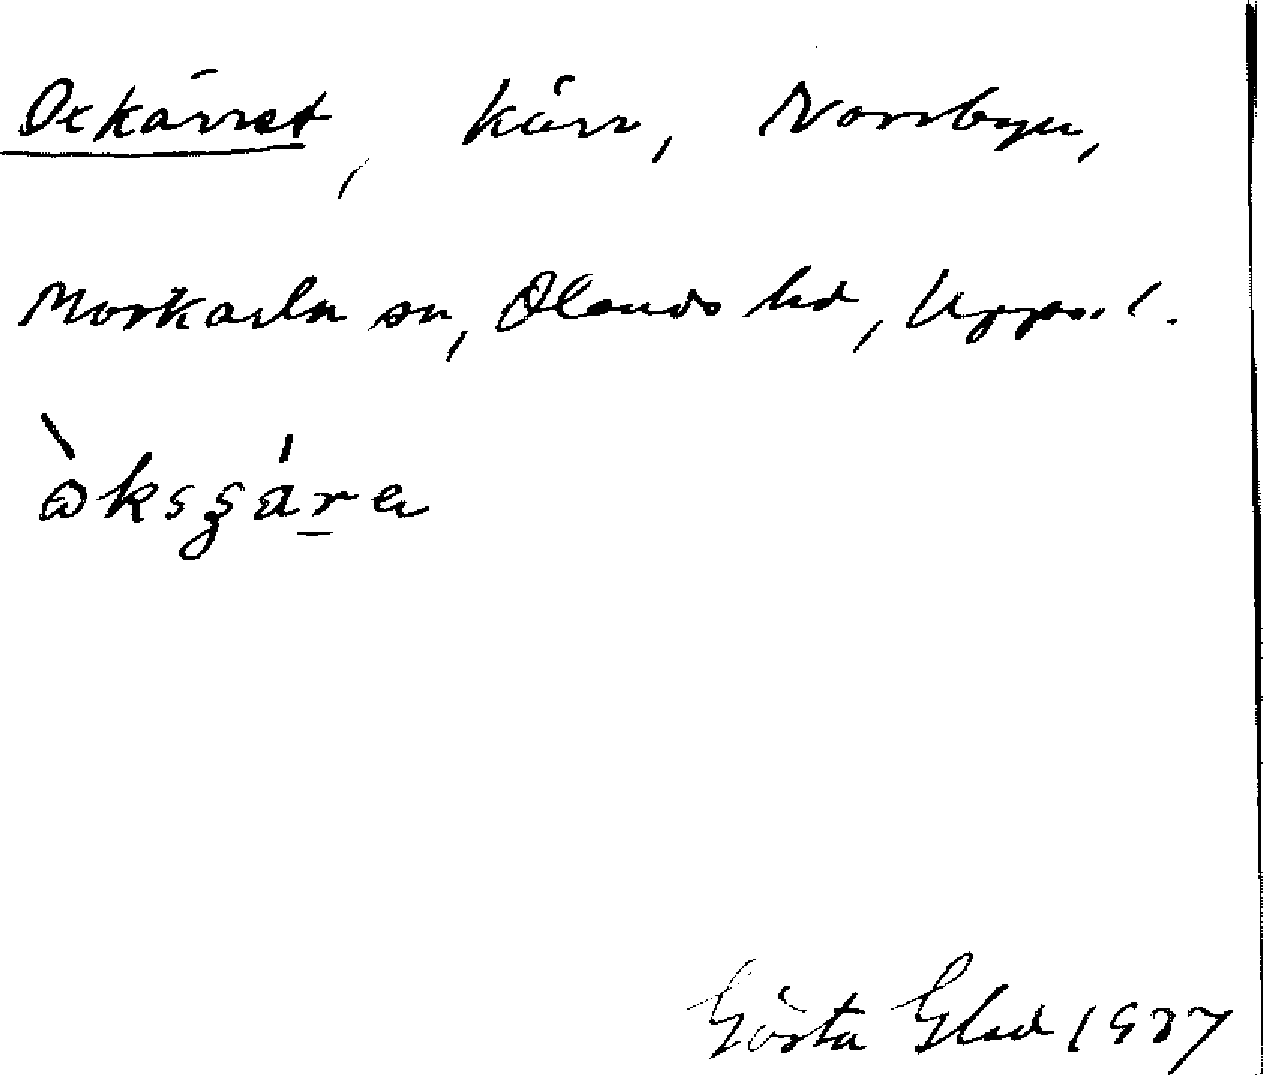 Ockärret, kärr, Norrbyn,
Morkarla sn, Olands hd, Uppsl.
Gösta Glad 1937